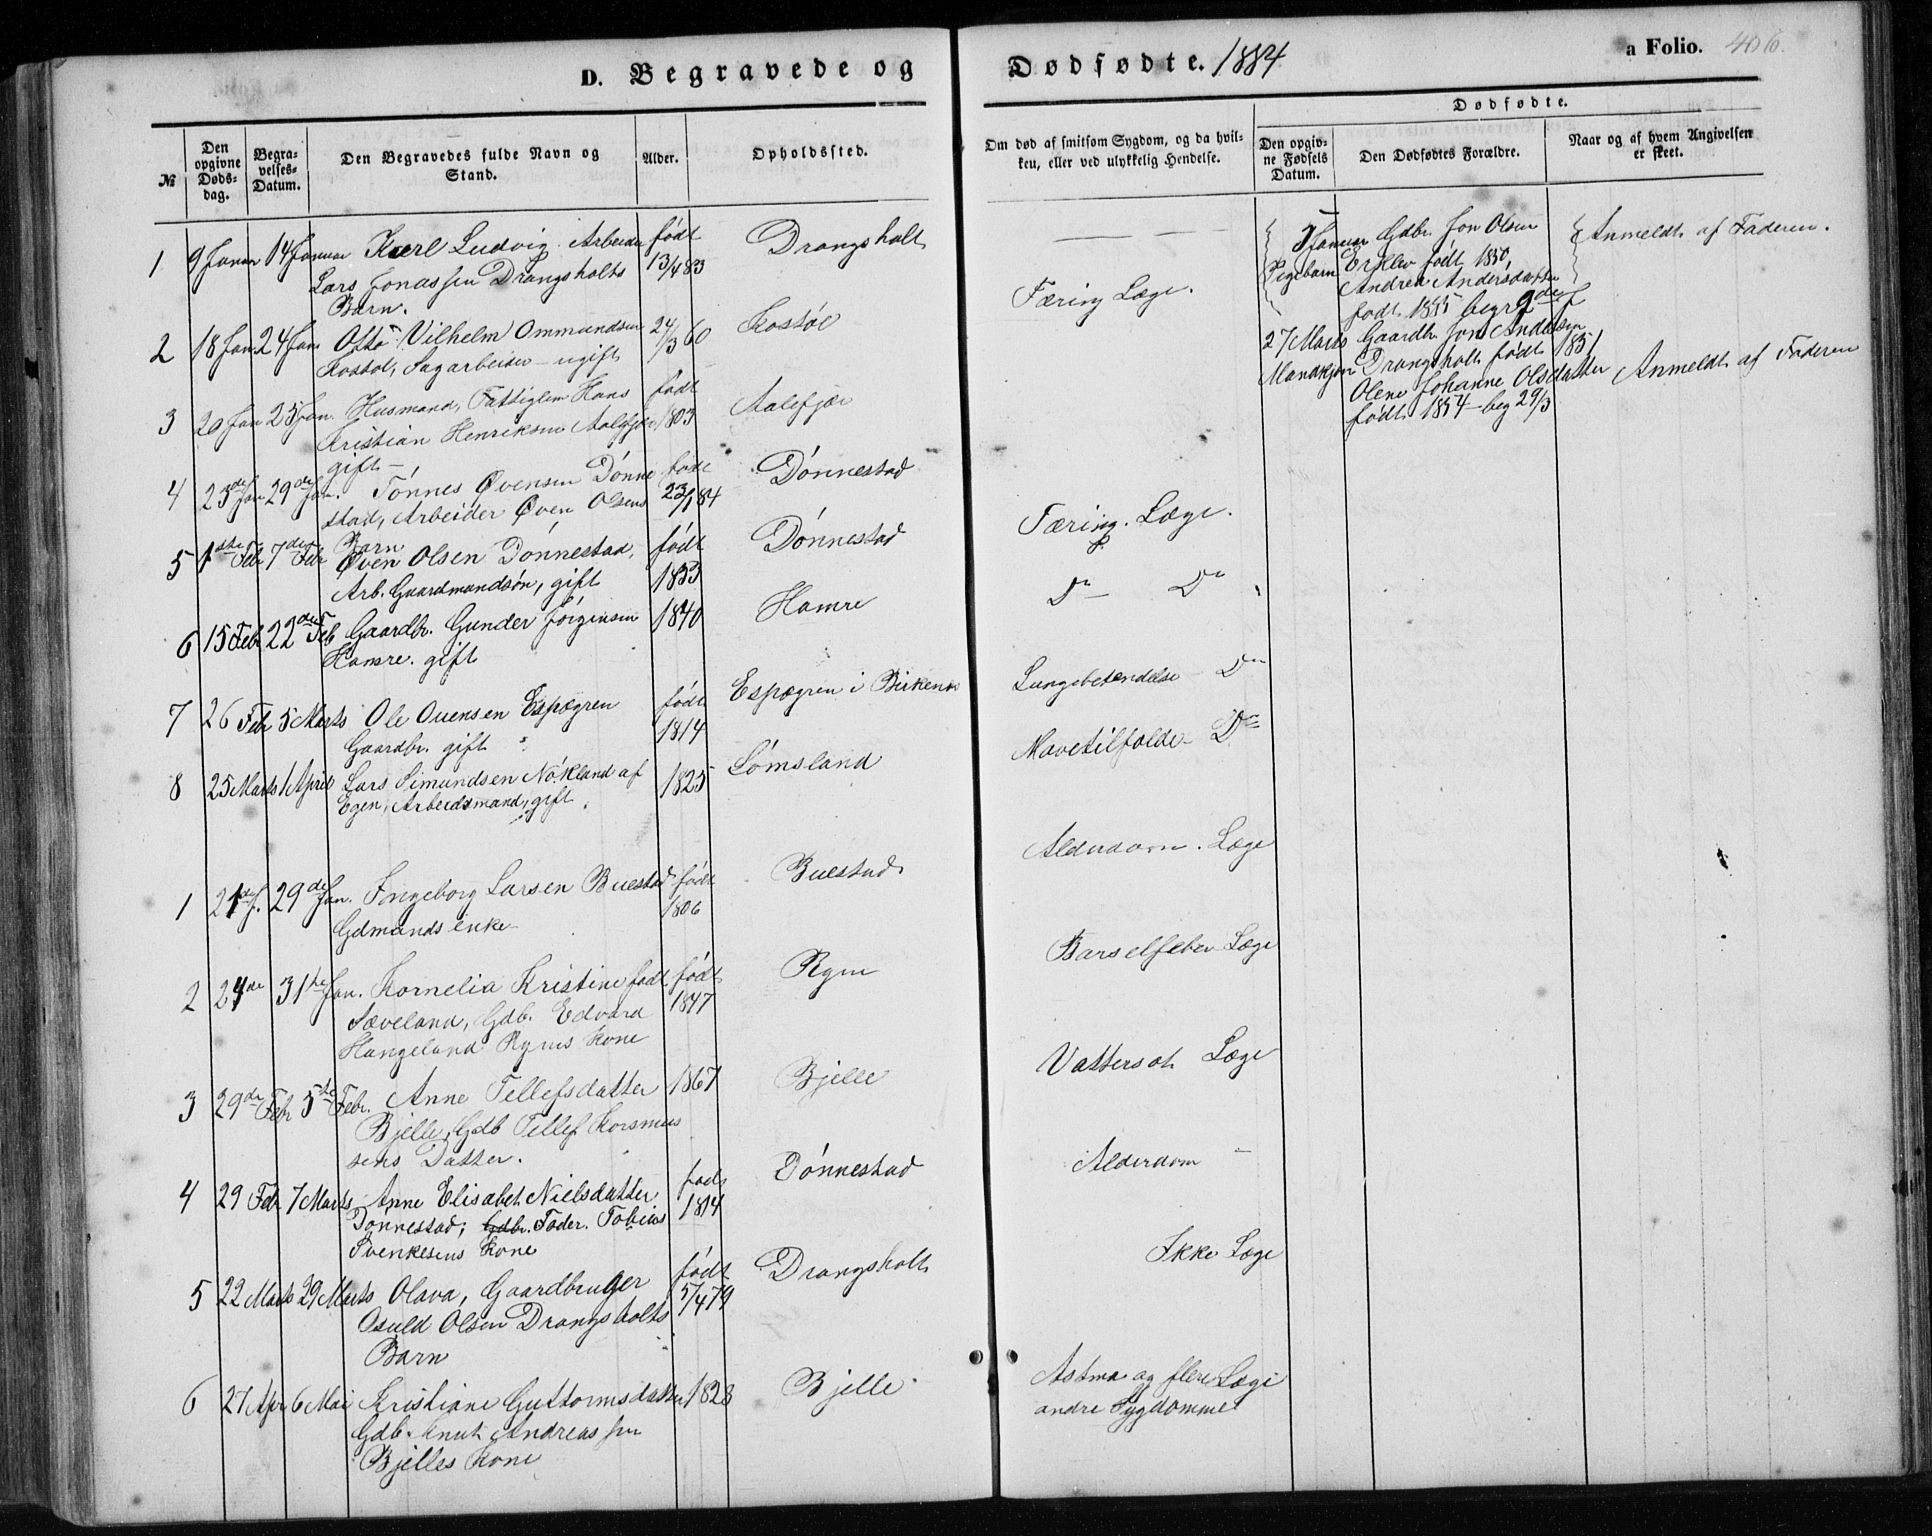 D. Begravede og Dødfødte. 1884
a Folio. 406.
№
Den opgivne Døds-dag.
Begra-velses-Datum.
Den Begravedes fulde Navn og Stand.
Alder.
Opholdssted.
Om død af smitsom Sygdom, og da hvil-ken, eller ved ulykkelig Hendelse.
Dødfødte.
Den opgiv-ne Fødsels Datum.
Den Dødfødtes Forældre.
Naar og af hvem Angivelsen er skeet.
1 9 Januar 14 Januar Karl Ludvig Arbeider født Drangsholt
Lars Jonassen Drangsholts 13/4 83
Barn.
2 18 Jan 24 Jan Otto Vilhelm Ommundsen 24/3 60 Kostøl Tæring Læge.
Kostøl, Sagarbeider - ugift
3 20 Jan 25 Jan. Husmand, Fattiglem Hans født Aalefjær
Kristian Henriksen Aalefjær 1803
gift -
4 23de Jan 29de Jan. Tønnes Øvensen Dønne født Dønnestad
stad, Arbeider Øven Olsens 23/1 84 Tæring. Læge.
Barn
5 1ste Febr 7de Febr Øven Olsen Dønnestad, født Dønnestad
Arb. Gaardmandsøn, gift 1853 Do Do
6 15 Febr 22de Feb Gaardbr. Gunder Jørgensen 1840 Hamre
Hamre. gift Lungebetændelse Do
7 26 Febr 5 Marts Ole Ouensen Espegren født Espegren i Birkenes
Gaardbr. gift 1814 Mavetilfælde - Do
8 25 Marts 1 April Lars Simundsen Nøkland af 1825 Lømsland
Egen, Arbeidsmand, gift
1 21de J. 29de Jan. Ingeborg Larsen Buestad født Buestad Alderdom. Læge
Gdmands enke 1806
2 24de 31te Jan. Kornelia Kristine født født Ryen Barselfeber Læge
Sæveland, Gdb. Edvard 1847
Hangeland Ryens Kone
3 29de Febr 5te Febr. Anne Tellefsdatter 1867 Bjelle Vattersot Læge
Bjelle, Gdb Tellef Rorsmus
sens Datter.
4 29 Febr 7 Marts Anne Elisabet Nielsdatter født Dønnestad Alderdom -
Dønnestad, Gdbr. Føder. Tobias 1814
Svenkesens Kone
5 22 Marts 29 Marts Olava, Gaardbruger født Drangsholt Ikke Læge
Osuld Olsen Drangsholts 5/4 79
Barn
6 27 Apr 6 Mai Kristiane Guttormsdatter 1828 Bjelle Astma og flere Læge
Gdb. Knut Andreassen andre Sygdomme
Bjelles Kone
Januar Gdbr. Jon Olsen Anmeldt af Faderen.
Pigebarn Erklev født 1850,
Andrea Andersdatter
født 1855 begr 9de J
27 Marts Gaardbr Jon Andersen
Mandkjøn Drangsholt født 1851
Olene Johanne Olsdatter Anmeldt af Faderen
født 1854 - beg 29/3